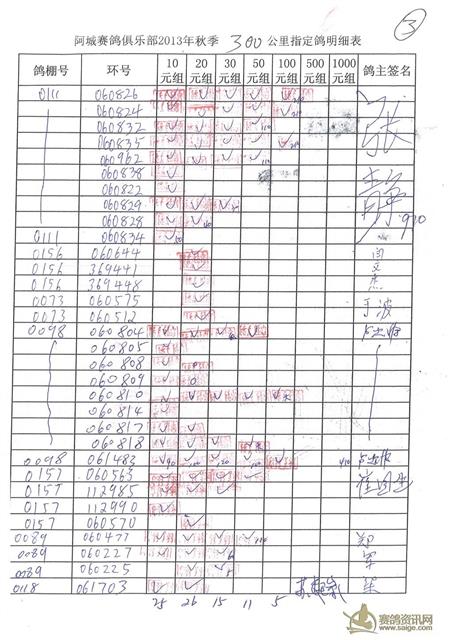 ③
阿城赛鸽俱乐部2013年秋季 300 公里指定鸽明细表
鸽棚号 环号 10元组 20元组 30元组 50元组 100元组 500元组 1000元组 鸽主签名
0111 060826 ✓ ✓ ✓ ✓ ✓ 张
060824 ✓ ✓ ✓ ✓ ✓
060832 ✓ ✓ ✓ ✓
060835 ✓ ✓ ✓ ✓ ✓
060962 ✓ ✓ ✓ ✓
060838 ✓ 静
060822 ✓
060829 ✓ ✓ ✓
060828 ✓ ✓ 910
0111 060834 ✓
0156 060644 ✓
0156 369441 ✓
0156 369448 ✓
0073 060575 ✓ 于波
0073 060512 ✓
0098 060804 ✓ ✓ ✓ ✓
060805 ✓
060808 ✓
060809 ✓
060810 ✓ ✓ ✓ ✓ ✓
060814 ✓
060817 ✓ ✓
060818 ✓ ✓ ✓ ✓
0098 061483 ✓ ✓ ✓ ✓ ✓ 410
0157 060563 ✓ ✓ ✓
0157 112985 ✓ ✓ ✓
0157 112990 ✓
0157 060570 ✓
0089 060477 ✓ ✓ ✓ ✓ 郑
0089 060227 ✓ ✓ ✓ 军
0089 060225 ✓ ✓
0118 061703 ✓ ✓ ✓
25 26 15 11 5
赛鸽资讯网
www.saige.com